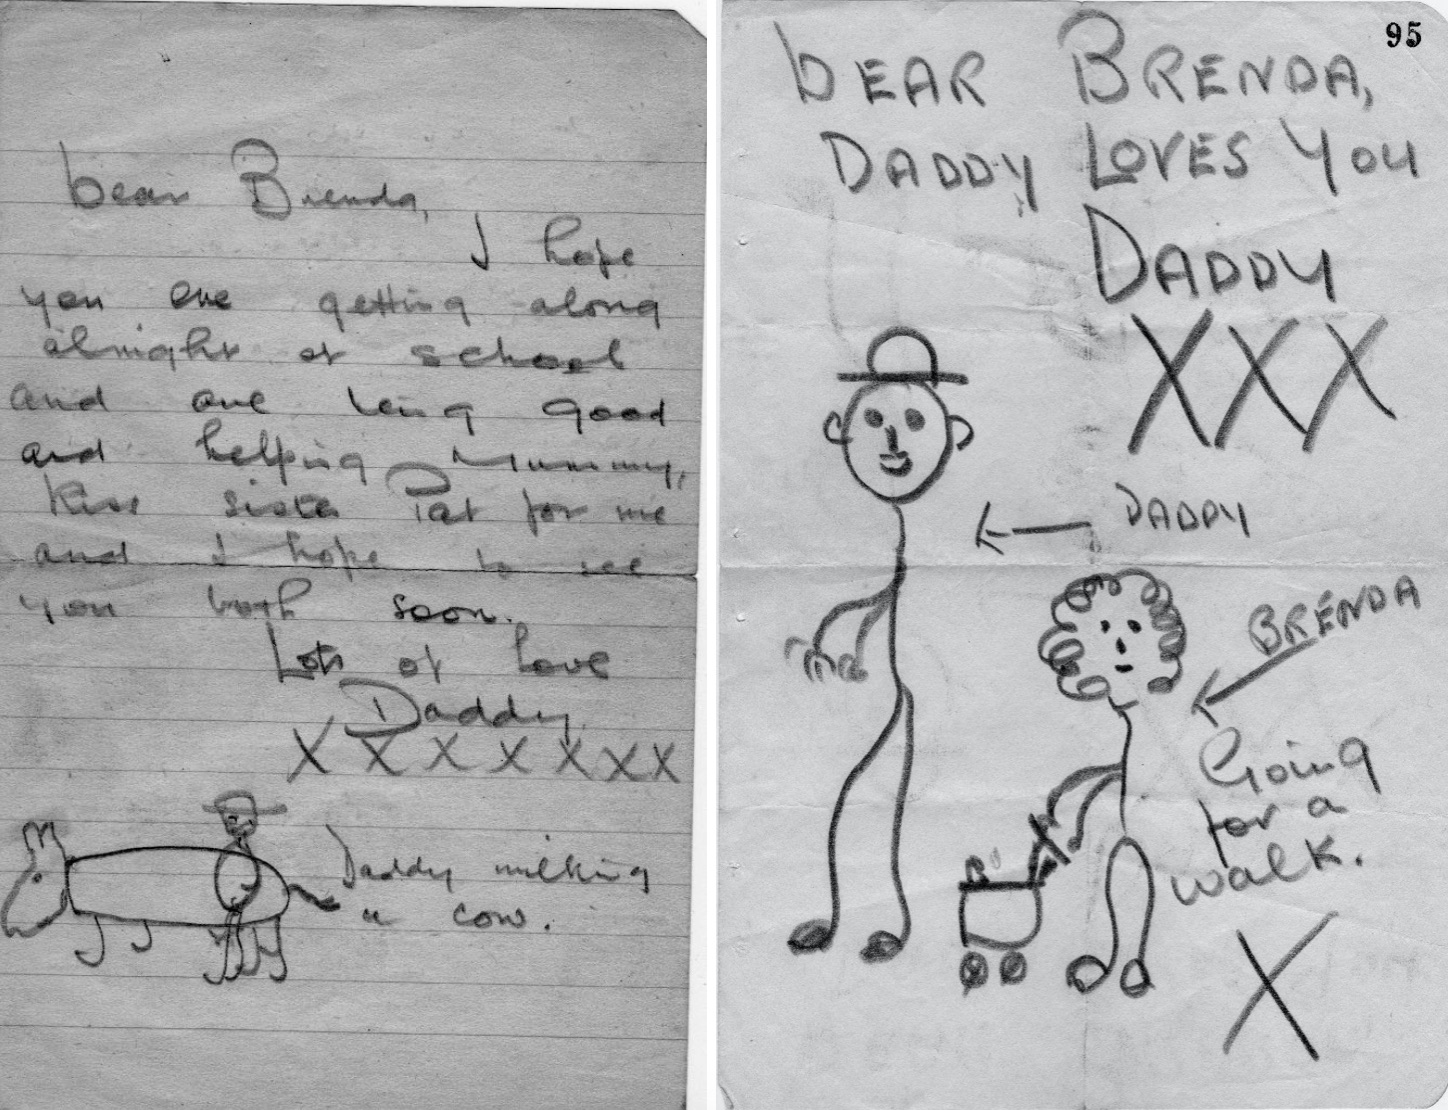 Dear Brenda,
I hope
you are getting along
alright at school
and are being good
and helping Mummy,
Kiss sister Pat for me
and I hope to see
you both soon.
Lots of love
Daddy
X X X X X X X
Daddy milking
a cow.
95
DEAR BRENDA,
DADDY LOVES YOU
DADDY
XXX
DADDY
BRENDA
Going
for a
walk.
X